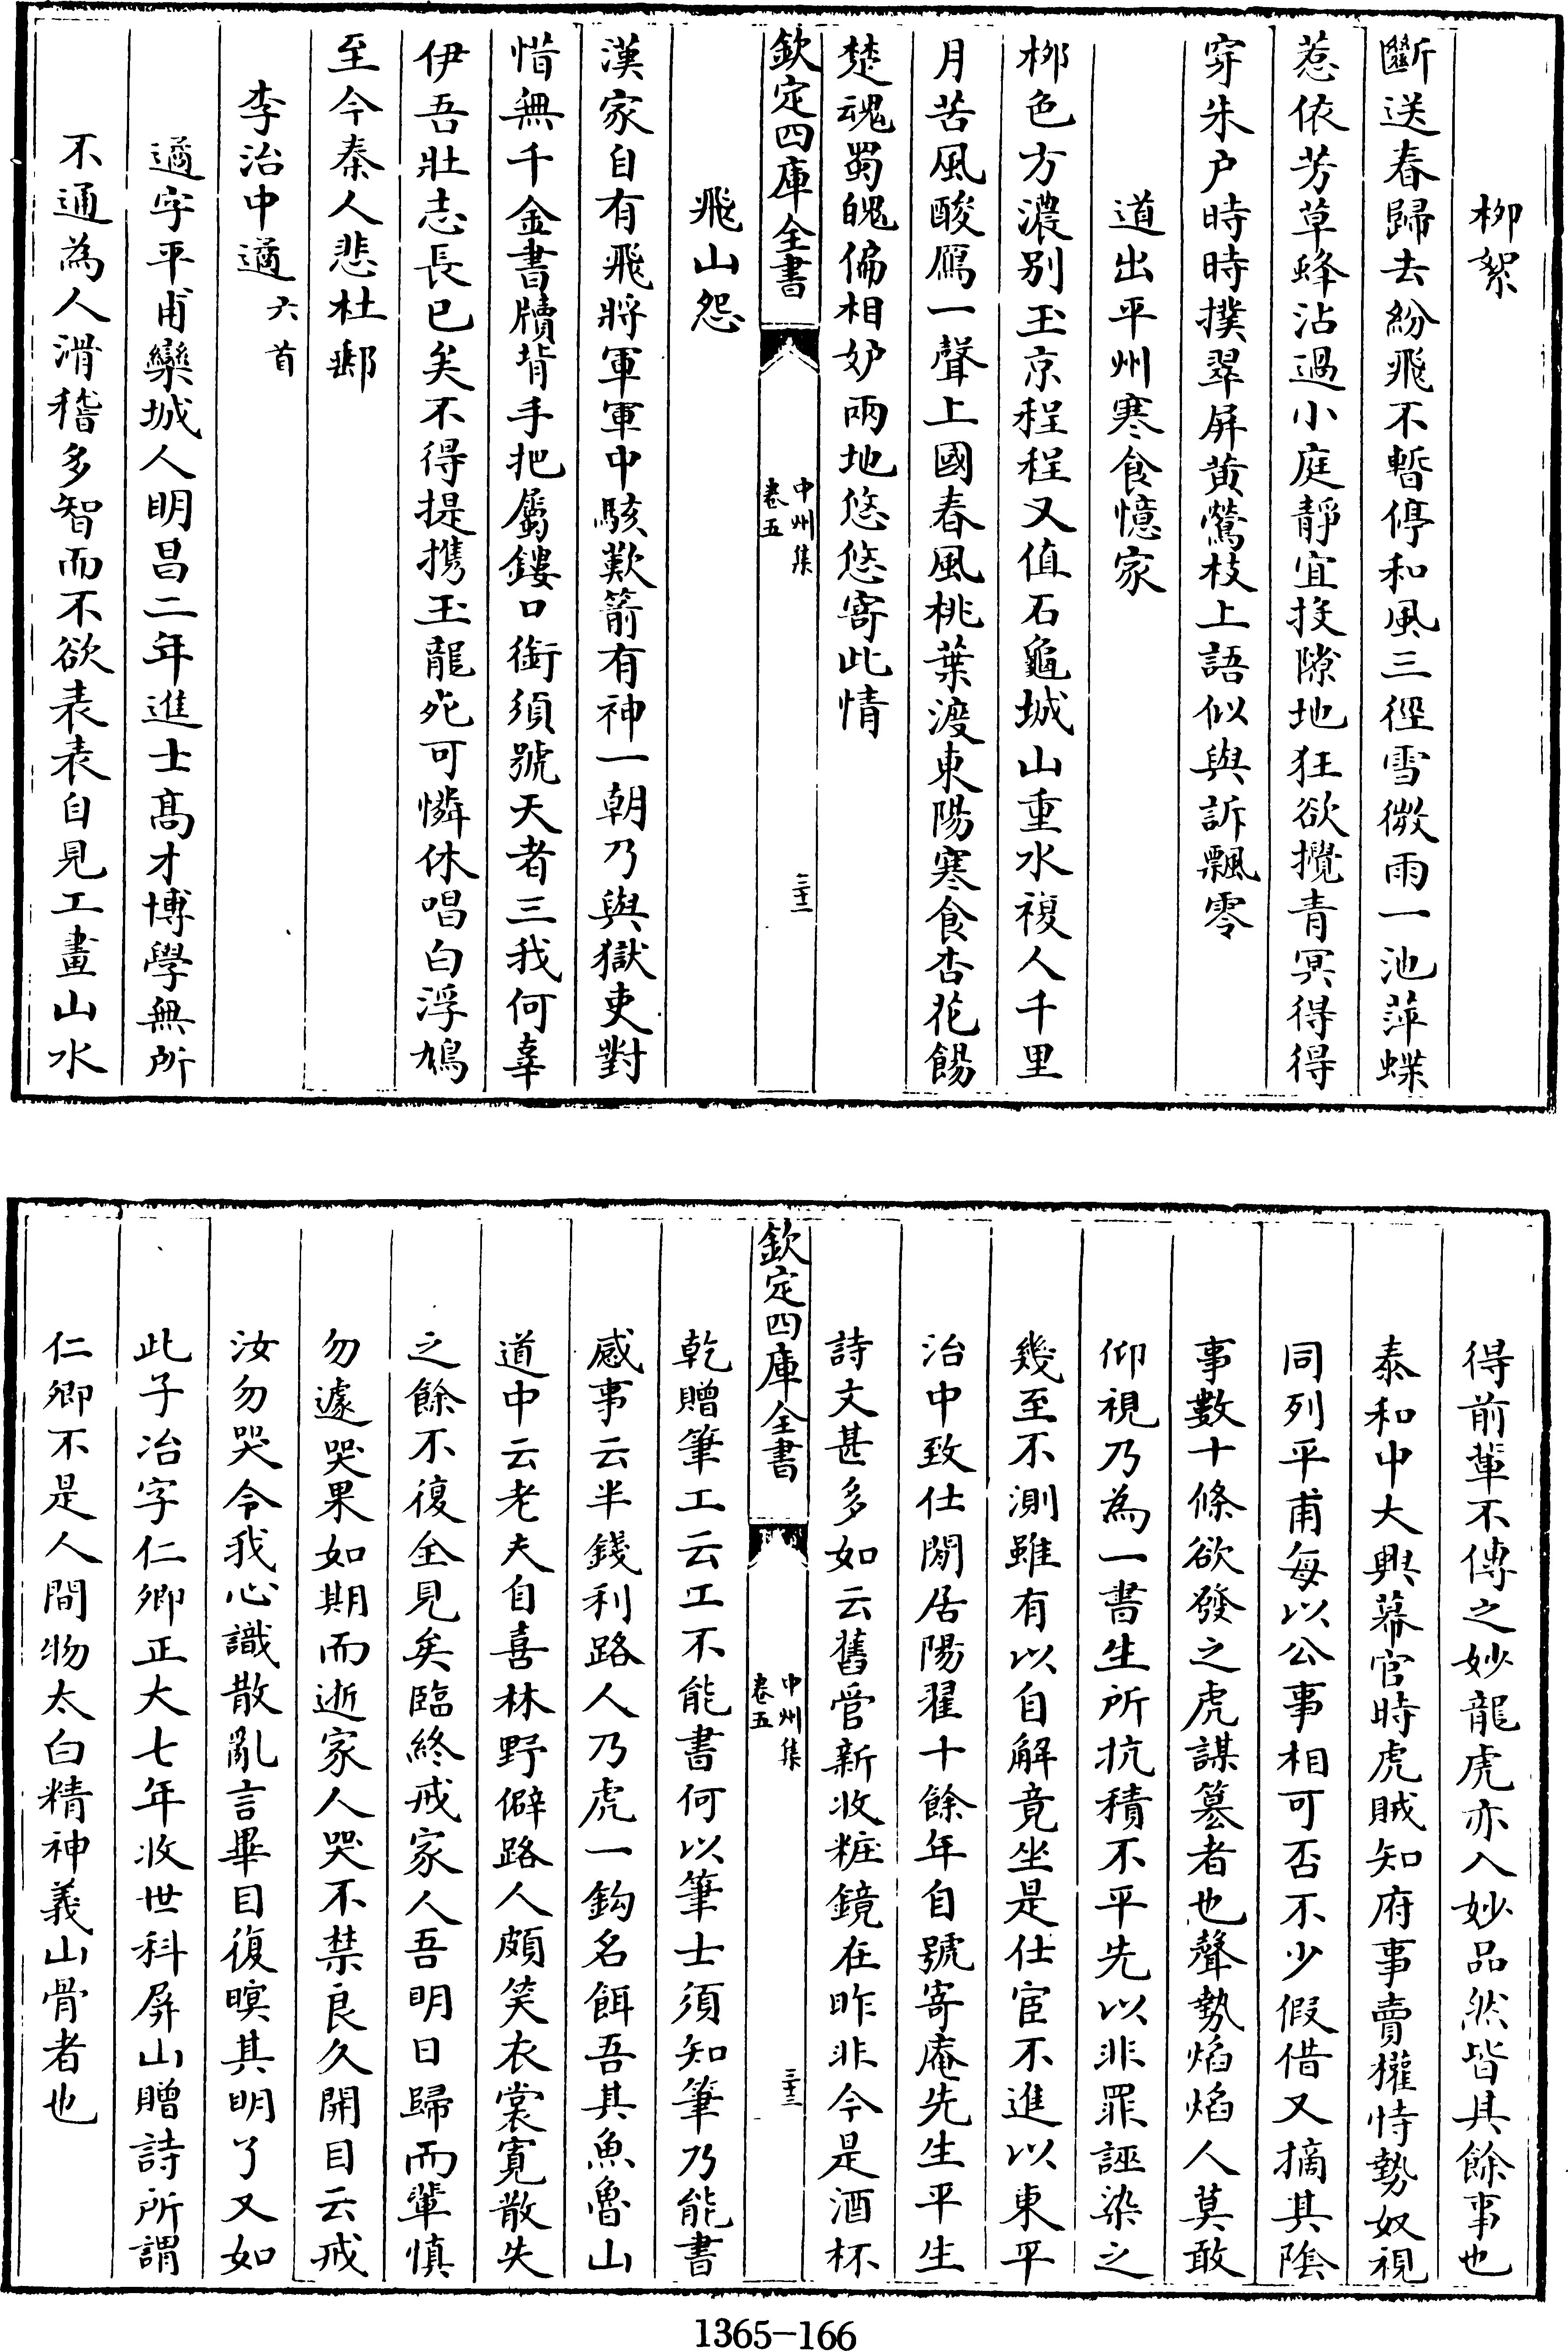 柳絮
斷送春歸去紛飛不暫停和風三徑雪微雨一池萍蝶
惹依芳草蜂沾過小庭靜宜投隙地狂欲攪青冥得得
穿朱户時時撲翠屏黄鶯枝上語似與訴飄零
道出平州寒食憶家
柳色方濃别玉京程程又值石龜城山重水複人千里
月苦風酸鴈一聲上國春風桃葉渡東陽寒食杏花餳
楚魂蜀魄偏相妒兩地悠悠寄此情
欽定四庫全書
中州集
卷五
三十二
飛山怨
漢家自有飛將軍軍中駭歎箭有神一朝乃與獄吏對
惜無千金書牘背手把屬鏤口銜須號天者三我何辜
伊吾壯志長已矣不得提携玉龍死可憐休唱白浮鳩
至今秦人悲杜郵
李治中遹六首
遹字平甫欒城人明昌二年進士髙才博學無所
不通為人滑稽多智而不欲表表自見工畫山水
得前輩不傳之妙龍虎亦入妙品然皆其餘事也
泰和中大興幕官時虎賊知府事賣權恃勢奴視
同列平甫每以公事相可否不少假借又摘其陰
事數十條欲發之虎謀簒者也聲勢焰焰人莫敢
仰視乃為一書生所抗積不平先以非罪誣染之
幾至不測雖有以自解竟坐是仕宦不進以東平
治中致仕閒居陽翟十餘年自號寄庵先生平生
詩文甚多如云舊管新收粧鏡在昨非今是酒杯
欽定四庫全書
中州集
卷五
三十三
乾贈筆工云工不能書何以筆士須知筆乃能書
感事云半錢利路人乃虎一鈎名餌吾其魚魯山
道中云老夫自喜林野僻路人頗笑衣裳寛散失
之餘不復全見矣臨終戒家人吾明日歸而輩慎
勿遽哭果如期而逝家人哭不禁良久開目云戒
汝勿哭令我心識散亂言畢目復瞑其明了又如
此子冶字仁卿正大七年收世科屏山贈詩所謂
仁卿不是人間物太白精神義山骨者也
1365-166